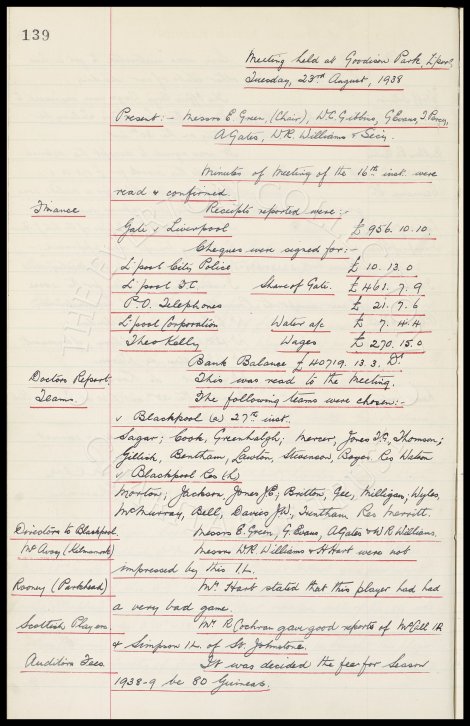 139
Meeting held at Goodison Park, L'pool,
Tuesday, 23rd August, 1938
Present:- Messrs E. Green, (Chair), W.C. Gibbins, G. Evans, T. Percy,
A. Gates, W.R. Williams & Secy.
Minutes of Meeting of the 16th inst. were
read & confirmed.
Finance Receipts reported were:-
Gate v Liverpool £ 956. 10. 10.
Cheques were signed for:-
L'pool City Police £ 10. 13. 0
L'pool F.C. Share of Gate. £ 461. 7. 9
P.O. Telephones £ 21. 17. 6
L'pool Corporation Water a/c £ 7. 4. 4
Theo Kelly Wages £ 270. 15. 0
Bank Balance £40719. 13. 3. Dr
Doctors Report. This was read to the Meeting.
Teams. The following teams were chosen:-
v Blackpool (a) 27th inst.
Sagar; Cook, Greenhalgh; Mercer, Jones T.G, Thomson;
Gillick, Bentham, Lawton, Stevenson, Boyes. Res Watson
v Blackpool Res (h)
Morton; Jackson, Jones J.E; Britton, Gee, Milligan; Wyles,
McMurray, Bell, Davies J.W, Trentham Res Merritt.
Directors to Blackpool. Messrs E. Green, G. Evans, A. Gates & W.R. Williams.
Mc Avoy (Kilmarnock) Messrs W.R. Williams & H. Hart were not
impressed by this I.L.
Rooney (Parkhead) Mr. Hart stated that this player had had
a very bad game.
Scottish Players. Mr. R Cochran gave good reports of McCall I.R
& Simpson I.L. of St. Johnstone.
Auditors Fees. It was decided the fee for Season
1938-9 be 80 Guineas.